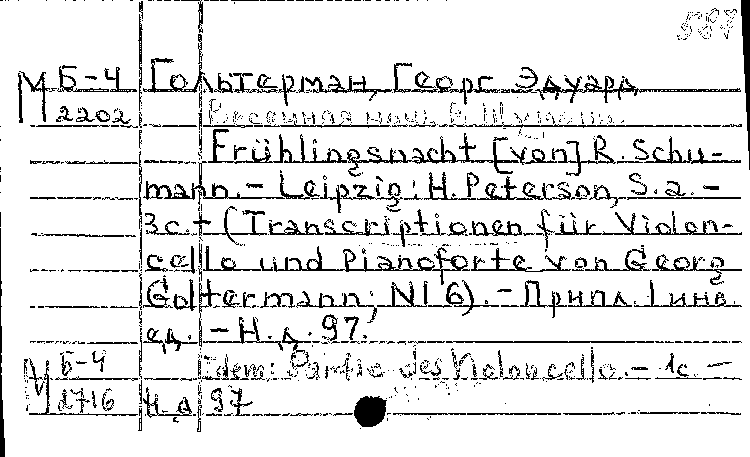 587
М Б-4 Гольтерман, Георг Эдуард
2202 Весенняя ночь Р. Шуман.
Frühlingsnacht [von] R. Schu-
mann. - Leipzig: H. Peterson, S.a. -
3c. - (Transcriptionen für Violon-
cello und Pianoforte von Georg
Goltermann; N16). - Припл. 1 инв.
ед. - Н.д. 97.
М Б-4 Idem: Partie des Violoncello. - 1c. -
2716 Н.д 97